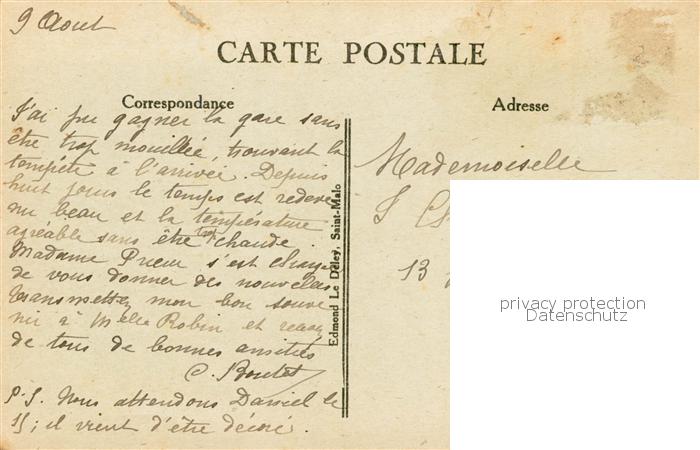 9 Août
CARTE POSTALE
Correspondance
Adresse
J'ai pu gagner la gare sans
être trop mouillée, trouvant la
tempête à l'arrivée. Depuis
huit jours le temps est redeve
nu beau et la température
agréable sans être trop chaude.
Madame Prieur s'est chargée
de vous donner des nouvelles
transmettez mon bon souve
nir à Melle Robin et recevez
de tous de bonnes amitiés
C. Boutet
P.S. Nous attendons Daniel le
15; il vient d'être décoré.
Edmond Le Déley, Saint-Malo
Mademoiselle
13
privacy protection
Datenschutz